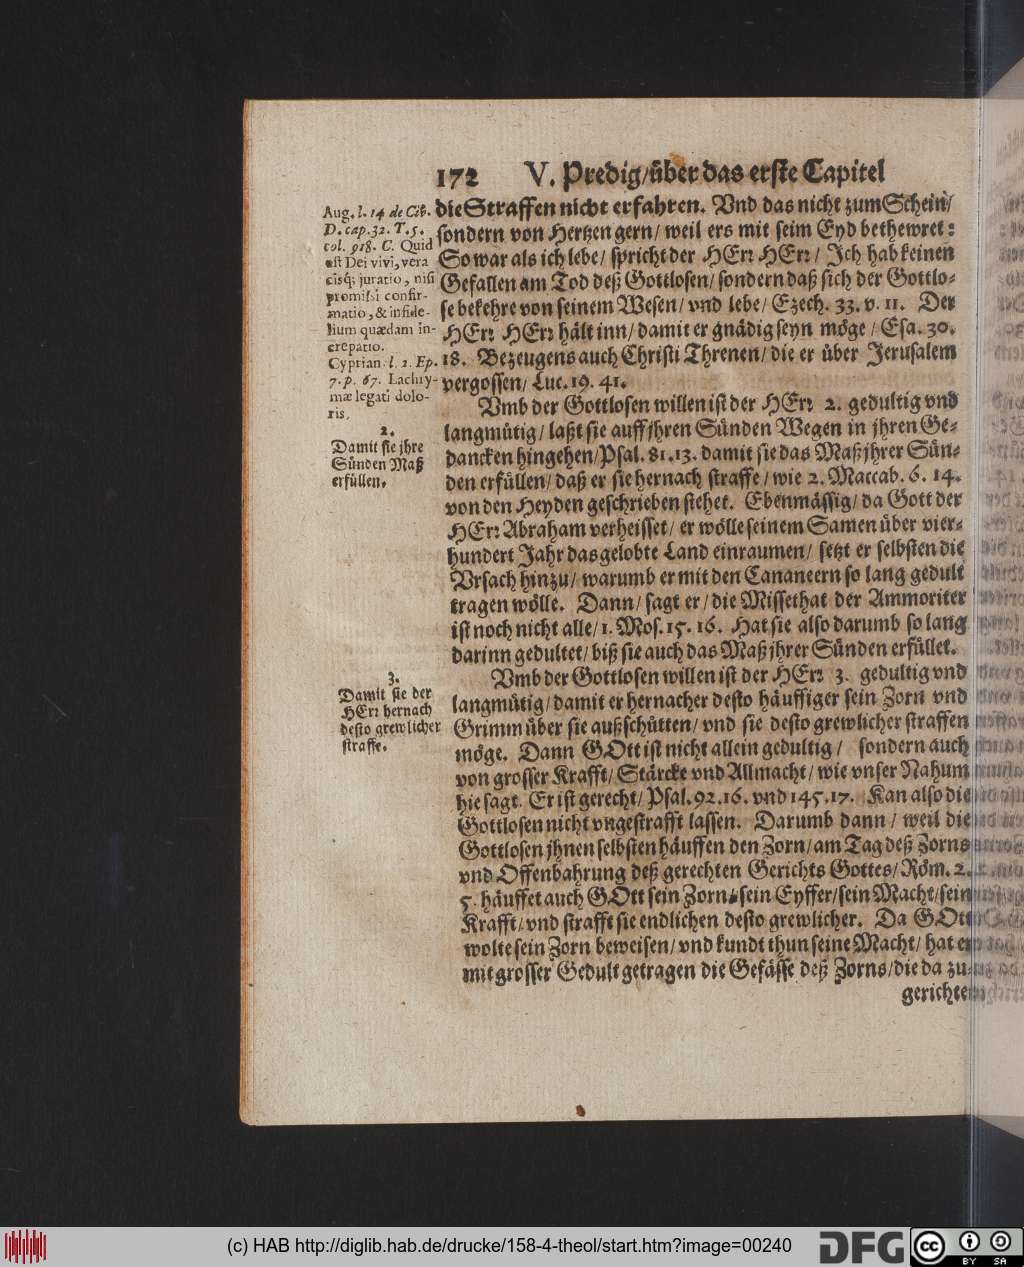 172 V. Predig/über das erste Capitel
die Straffen nicht erfahren. Vnd das nicht zum Schein/
sondern von Hertzen gern/ weil ers mit seim Eyd bethewret:
So war als ich lebe/ spricht der HErr HErr/ Ich hab keinen
Gefallen am Tod deß Gottlosen/ sondern daß sich der Gottlo-
se bekehre von seinem Wesen/ vnd lebe/ Ezech. 33. v. 11. Der
HErr HErr hält inn/ damit er gnädig seyn möge/ Esa. 30.
18. Bezeugens auch Christi Threnen/ die er über Jerusalem
vergossen/ Luc. 19. 41.
Vmb der Gottlosen willen ist der HErr 2. gedultig vnd
langmütig/ laßt sie auff jhren Sünden Wegen in jhren Ge-
dancken hingehen/ Psal. 81. 13. damit sie das Maß jhrer Sün-
den erfüllen/ daß er sie hernach straffe/ wie 2. Maccab. 6. 14.
von den Heyden geschrieben stehet. Ebenmässig/ da Gott der
HErr Abraham verheisset/ er wölle seinem Samen über vier-
hundert Jahr das gelobte Land einraumen/ setzt er selbsten die
Vrsach hinzu/ warumb er mit den Cananeern so lang gedult
tragen wölle. Dann/ sagt er/ die Missethat der Ammoriter
ist noch nicht alle/ 1. Mos. 15. 16. Hat sie also darumb so lang
darinn gedultet/ biß sie auch das Maß jhrer Sünden erfüllet.
Vmb der Gottlosen willen ist der HErr 3. gedultig vnd
langmütig/ damit er hernacher desto häuffiger sein Zorn vnd
Grimm über sie außschütten/ vnd sie desto grewlicher straffen
möge. Dann GOtt ist nicht allein gedultig/ sondern auch
von grosser Krafft/ Stärcke vnd Allmacht/ wie vnser Nahum
hie sagt. Er ist gerecht/ Psal. 92. 16. vnd 145. 17. Kan also die
Gottlosen nicht vngestrafft lassen. Darumb dann/ weil die
Gottlosen jhnen selbsten häuffen den Zorn/ am Tag deß Zorns
vnd Offenbahrung deß gerechten Gerichts Gottes/ Röm. 2.
5. häuffet auch GOtt sein Zorn/ sein Eyffer/ sein Macht/ sein
Krafft/ vnd strafft sie endlichen desto grewlicher. Da GOtt
wolte sein Zorn beweisen/ vnd kundt thun seine Macht/ hat er
mit grosser Gedult getragen die Gefässe deß Zorns/ die da zu-
gerichtet
Aug. l. 14 de Cib.
D. cap. 32. T. 5.
col. 918. C. Quid
est Dei vivi, vera
cisq; juratio, nisi
promissi confir-
matio, & infide-
lium quædam in-
crepatio.
Cyprian. l. 2. Ep.
7. p. 67. Lachry-
mæ legati dolo-
ris.
2.
Damit sie jhre
Sünden Maß
erfüllen.
3.
Damit sie der
HErr hernach
desto grewlicher
straffe.
(c) HAB http://diglib.hab.de/drucke/158-4-theol/start.htm?image=00240
DFG
cc BY SA